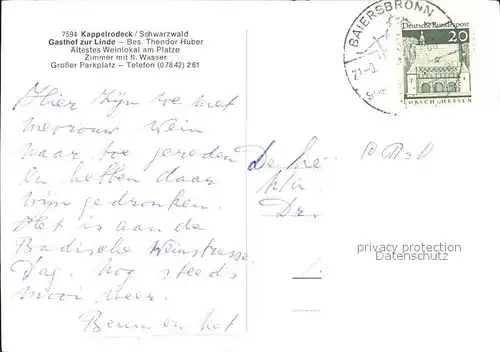 7594 Kappelrodeck / Schwarzwald
Gasthof zur Linde — Bes. Theodor Huber
Ältestes Weinlokal am Platze
Zimmer mit fl. Wasser
Großer Parkplatz — Telefon (07842) 261
BAIERSBRONN
21-9
Deutsche Bundespost
20
LORSCH/HESSEN
Hier zijn we met
mevrouw Wein
naar toe gereden
En hebben daar
wijn gedronken.
Het is aan de
Badische Weinstrasse.
Dag. nog steeds
mooi weer.
en het
De he
Dr.
privacy protection
Datenschutz